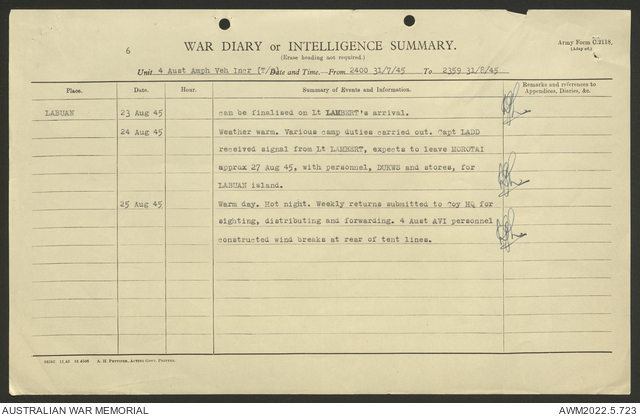 6
WAR DIARY or INTELLIGENCE SUMMARY.
(Erase heading not required.)
Army Form C.2118.
(Adapted)
Unit 4 Aust Amph Veh Incr (T/B) Date and Time.—From 2400 31/7/45 To 2359 31/8/45
Place. Date. Hour. Summary of Events and Information. Remarks and references to Appendices, Diaries, &c.
LABUAN 23 Aug 45 can be finalised on Lt LAMBERT's arrival.
24 Aug 45 Weather warm. Various camp duties carried out. Capt LADD
received signal from Lt LAMBERT, expects to leave MOROTAI
approx 27 Aug 45, with personnel, DUKWS and stores, for
LABUAN island.
25 Aug 45 Warm day. Hot night. Weekly returns submitted to Coy HQ for
sighting, distributing and forwarding. 4 Aust AVI personnel
constructed wind breaks at rear of tent lines.
A. H. Pettifer, Acting Govt. Printer.
AUSTRALIAN WAR MEMORIAL
AWM2022.5.723